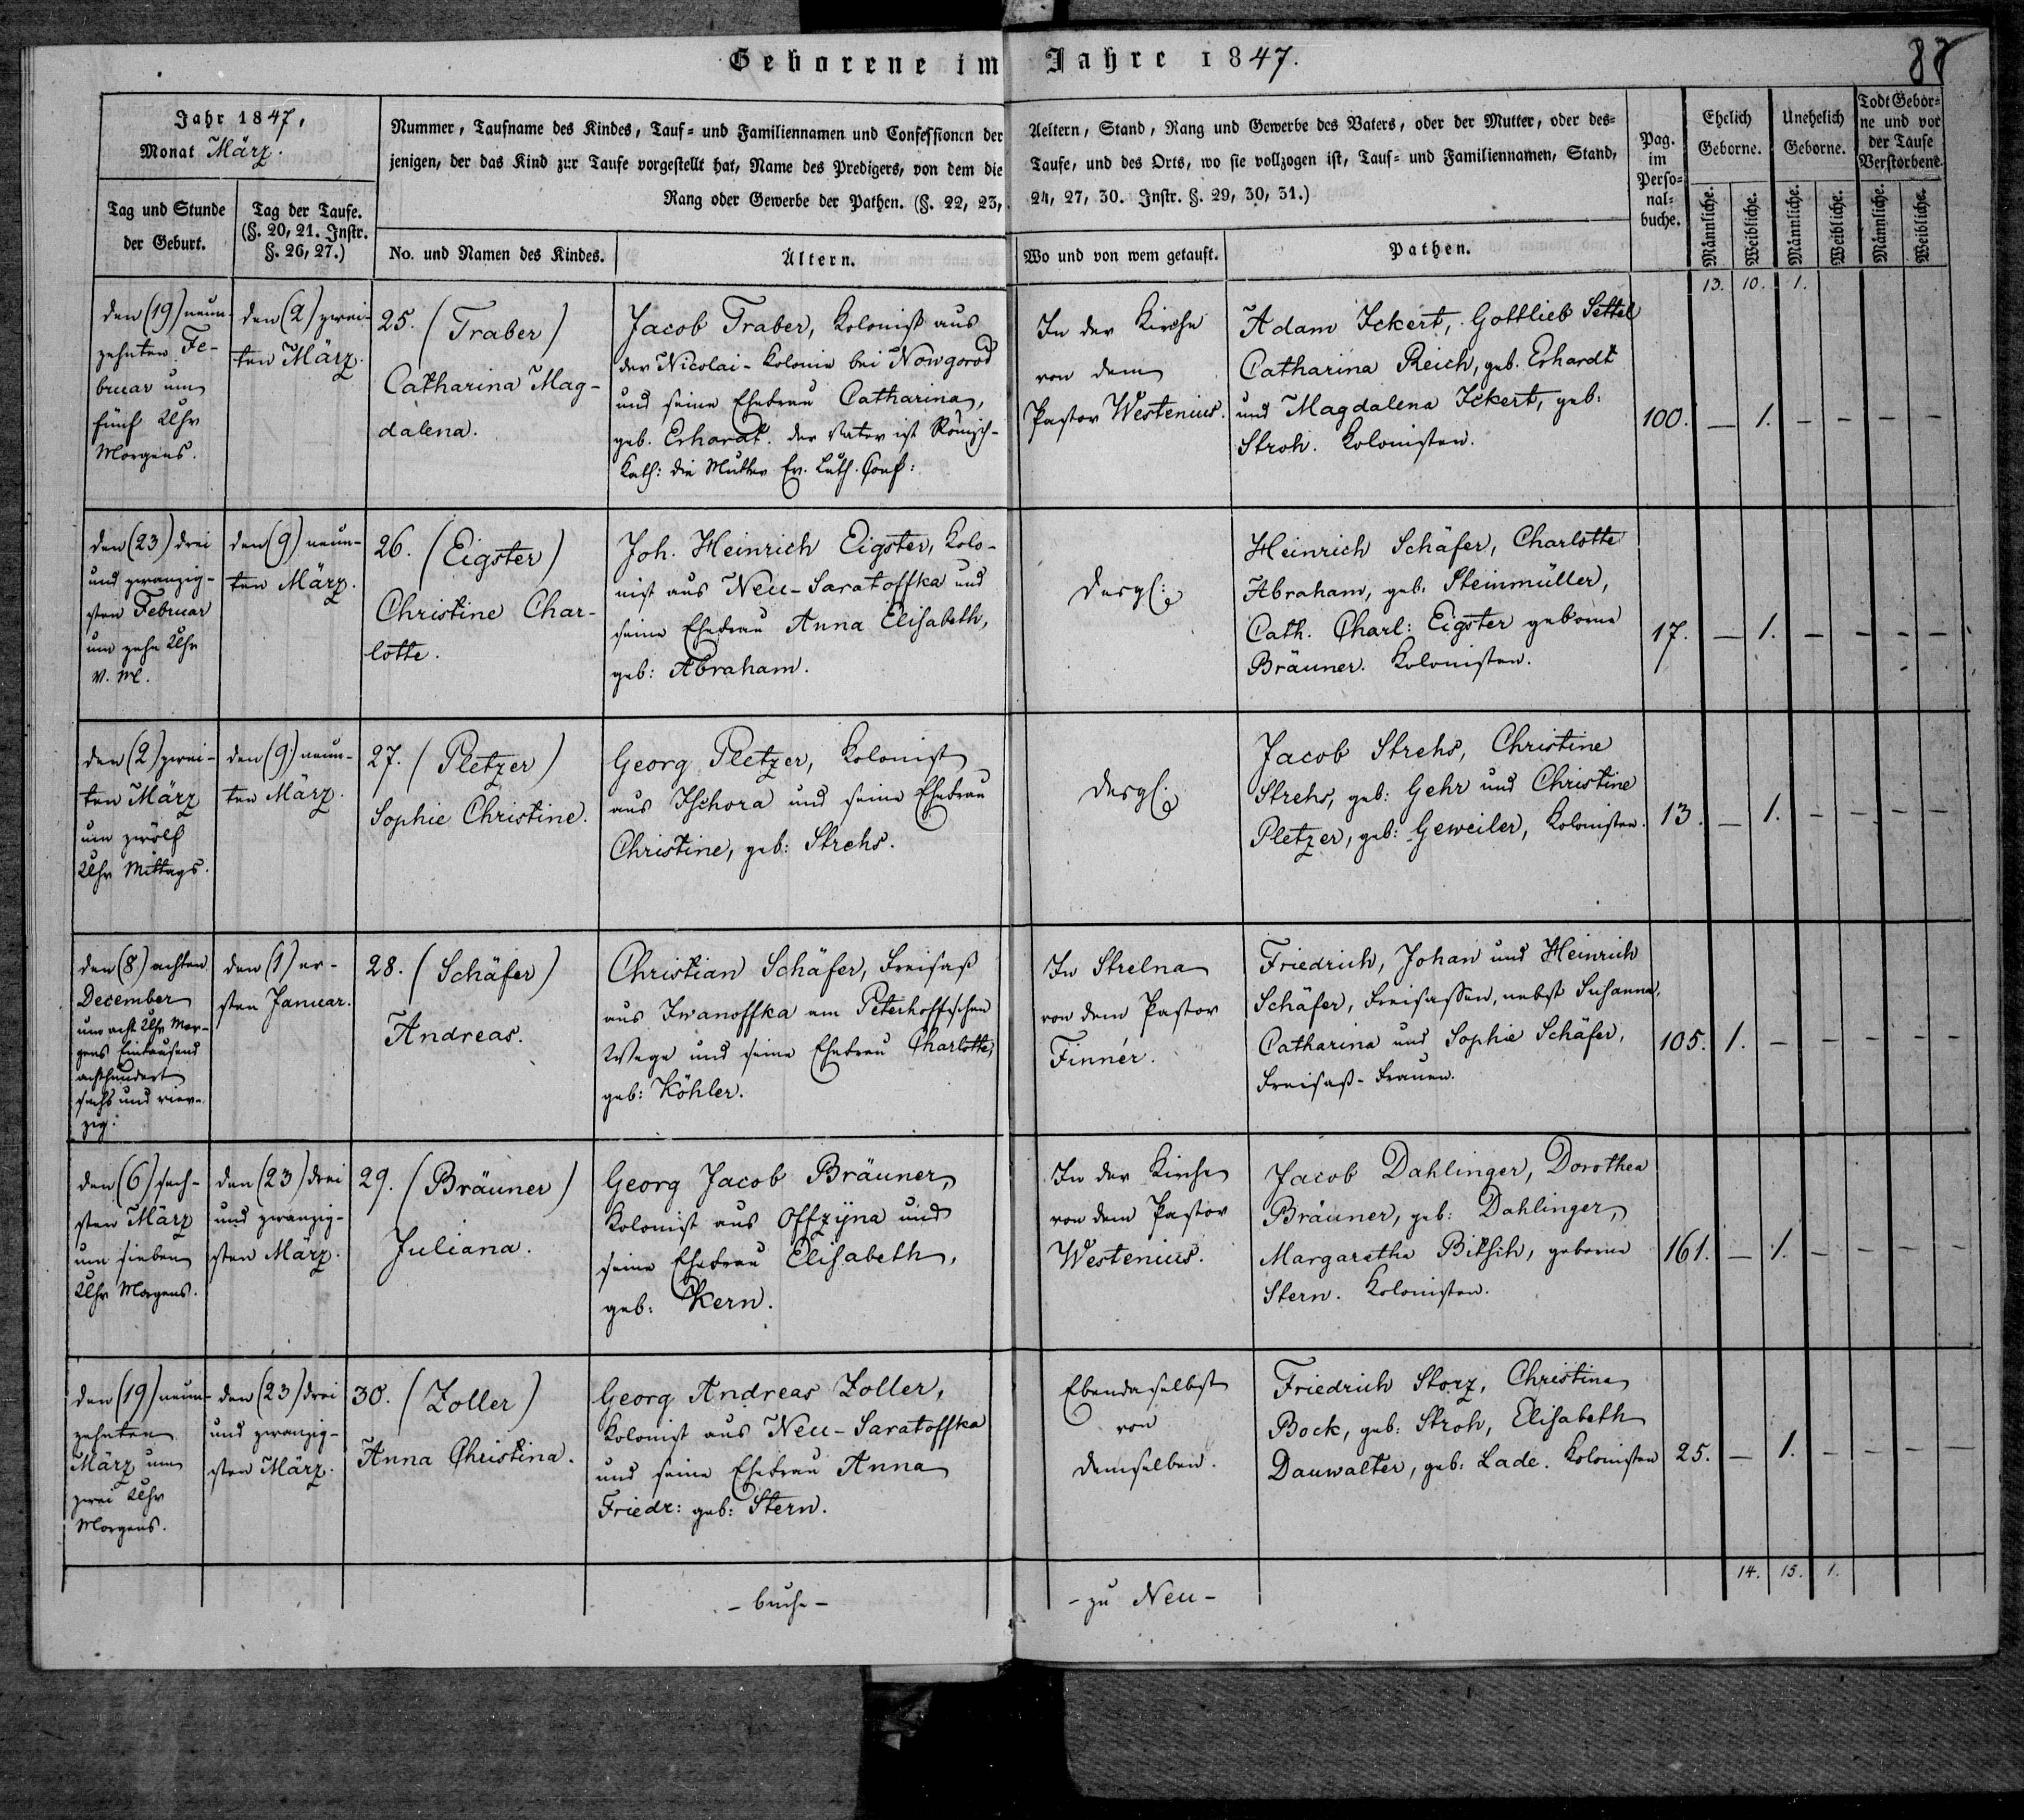 Geborene im Jahre 1847.
88
Jahr 1847,
Monat März.
Tag und Stunde
der Geburt.
Tag der Taufe.
(§. 20, 21. Instr.
§. 26, 27.)
Nummer, Taufname des Kindes, Tauf- und Familiennamen und Confessionen der Aeltern, Stand, Rang und Gewerbe des Vaters, oder der Mutter, oder des-
jenigen, der das Kind zur Taufe vorgestellt hat, Name des Predigers, von dem die Taufe, und des Orts, wo sie vollzogen ist, Tauf- und Familiennamen, Stand,
Rang oder Gewerbe der Pathen. (§. 22, 23, 24, 27, 30. Instr. §. 29, 30, 31.)
No. und Namen des Kindes.
Ältern.
Wo und von wem getauft.
Pathen.
Pag.
im
Perso-
nal-
buche.
Ehelich
Geborne.
Unehelich
Geborne.
Todt Gebor-
ne und vor
der Taufe
Verstorbene.
Männliche.
Weibliche.
Männliche.
Weibliche.
Männliche.
Weibliche.
13. 10. 1.
den (19) neun-
zehnten Fe-
bruar um
fünf Uhr
Morgens.
den (2) zwei-
ten März.
25. (Traber)
Catharina Mag-
dalena.
Jacob Traber, Kolonist aus
der Nicolai-Kolonie bei Nowgorod
und seine Ehefrau Catharina,
geb. Erhardt. der Vater ist Römisch-
Kath: die Mutter Ev. Luth. Conf:
In der Kirche
von dem
Pastor Westenius.
Adam Ickert, Gottlieb Settel
Catharina Reich, geb. Erhardt
und Magdalena Ickert, geb:
Stroh. Kolonisten.
100. — 1. — — — —
den (23) drei
und zwanzig-
sten Februar
um zehn Uhr
V. M.
den (9) neun-
ten März.
26. (Eigster)
Christine Char-
lotte.
Joh. Heinrich Eigster, Kolo-
nist aus Neu-Saratoffka und
seine Ehefrau Anna Elisabeth,
geb: Abraham.
desgl:
Heinrich Schäfer, Charlotte
Abraham, geb. Steinmüller,
Cath. Charl: Eigster geborne
Bräuner. Kolonisten.
17. — 1. — — — —
den (2) zwei-
ten März
um zwölf
Uhr Mittags.
den (9) neun-
ten März.
27. (Pletzer)
Sophie Christine.
Georg Pletzer, Kolonist
aus Ischora und seine Ehefrau
Christine, geb: Strehs.
desgl:
Jacob Strehs, Christine
Strehs, geb: Gehr und Christine
Pletzer, geb: Geweiler, Kolonisten.
13. — 1. — — — —
den (8) achten
December
um acht Uhr Mor-
gens Eintausend
achthundert
sechs und vier-
zig.
den (1) er-
sten Januar.
28. (Schäfer)
Andreas.
Christian Schäfer, Freisaß
aus Iwanoffka am Peterhoffschen
Wege und seine Ehefrau Charlotte,
geb: Köhler.
In Strelna
von dem Pastor
Finnér.
Friedrich, Johan und Heinrich
Schäfer, Freisassen, nebst Susanna,
Catharina und Sophie Schäfer,
Freisaß-Frauen.
105. 1. — — — — —
den (6) sech-
sten März
um sieben
Uhr Morgens.
den (23) drei
und zwanzig-
sten März.
29. (Bräuner)
Juliana.
Georg Jacob Bräuner,
Kolonist aus Offzÿna und
seine Ehefrau Elisabeth,
geb: Kern.
In der Kirche
von dem Pastor
Westenius.
Jacob Dahlinger, Dorothea
Bräuner, geb: Dahlinger,
Margaretha Bitsch, geborne
Stern. Kolonisten.
161. — 1. — — — —
den (19) neun-
zehnten
März um
zwei Uhr
Morgens.
den (23) drei
und zwanzig-
sten März.
30. (Zoller)
Anna Christina.
Georg Andreas Zoller,
Kolonist aus Neu-Saratoffka
und seine Ehefrau Anna
Friedr: geb: Stern.
Ebendaselbst
von
demselben.
Friedrich Storz, Christina
Bock, geb: Stroh, Elisabeth
Dauwalter, geb: Lade. Kolonisten
25. — 1. — — — —
14. 15. 1.
- buche -
- zu Neu -